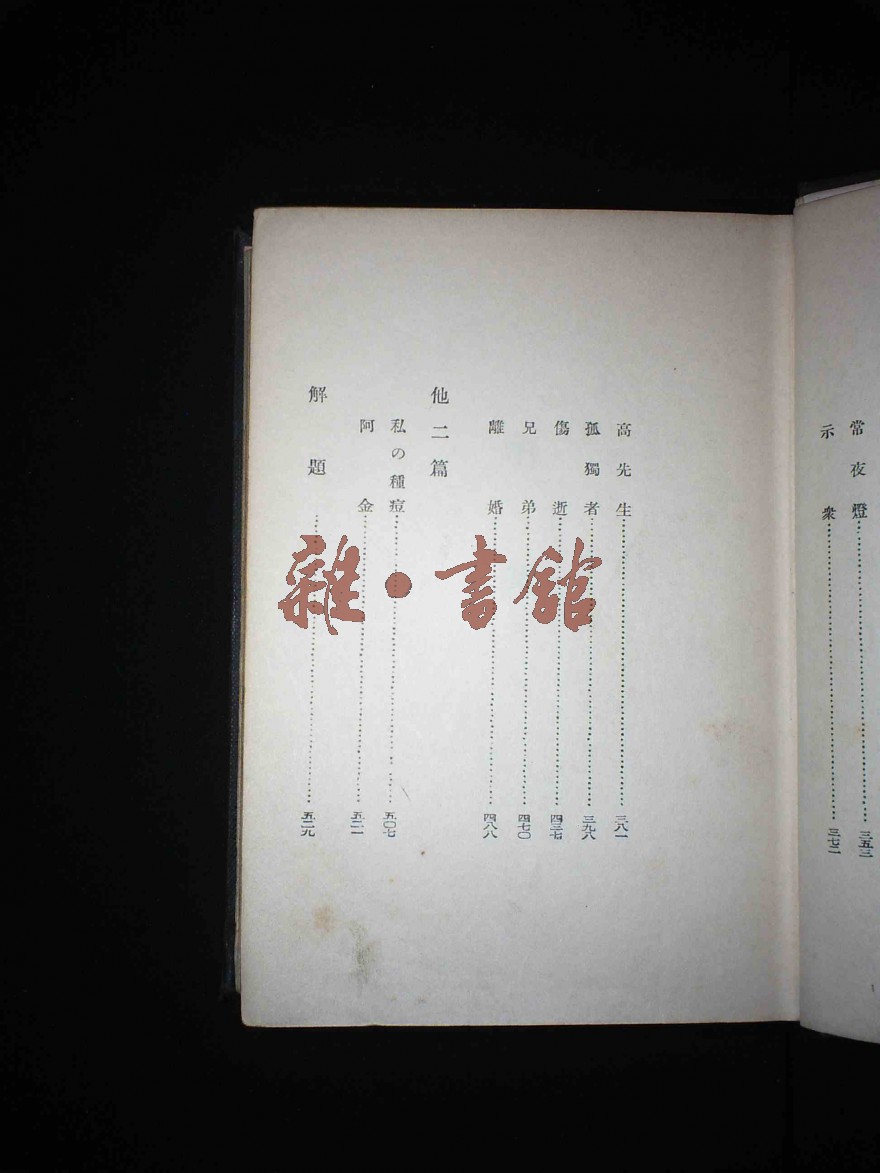 常夜燈 三五三
示衆 三七二
高先生 三八一
孤獨者 三九八
傷逝 四三七
兄弟 四七〇
離婚 四八八
他二篇
私の種痘 五〇七
阿金 五二一
解題 五二九
雜·書館